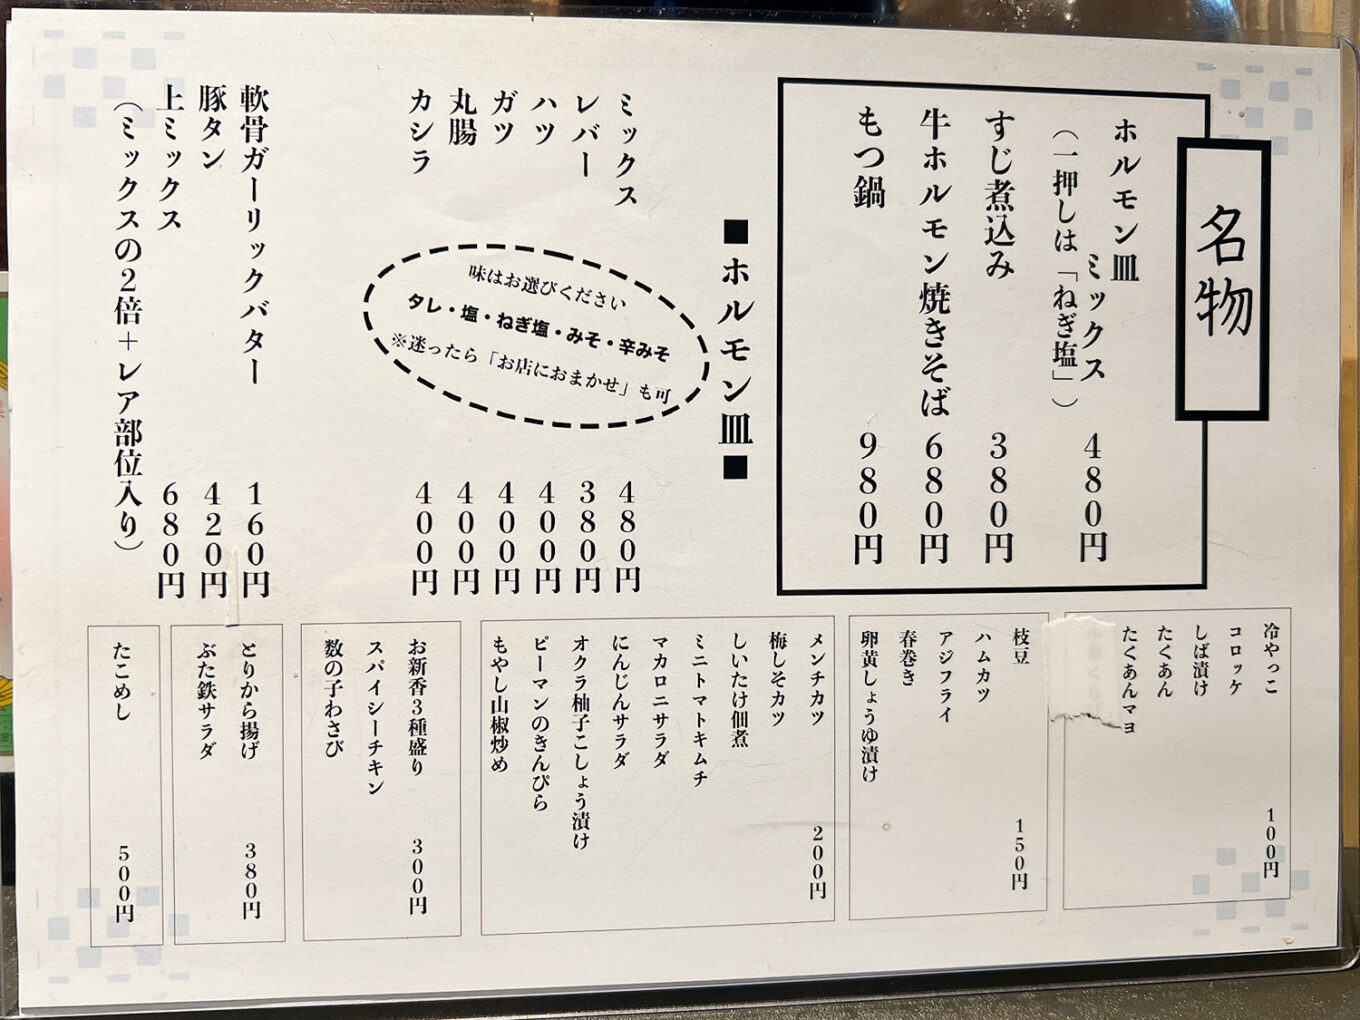 名物
ホルモン皿
ミックス 480円
（一押しは「ねぎ塩」）
すじ煮込み 380円
牛ホルモン焼きそば 680円
もつ鍋 980円
■ホルモン皿■
ミックス 480円
レバー 380円
ハツ 400円
ガツ 400円
丸腸 400円
カシラ 400円
味はお選びください
タレ・塩・ねぎ塩・みそ・辛みそ
※迷ったら「お店におまかせ」も可
軟骨ガーリックバター 160円
豚タン 420円
上ミックス 680円
（ミックスの2倍＋レア部位入り）
冷やっこ 100円
コロッケ
しば漬け
たくあん
たくあんマヨ
枝豆 150円
ハムカツ
アジフライ
春巻き
卵黄しょうゆ漬け
メンチカツ 200円
梅しそカツ
しいたけ佃煮
ミニトマトキムチ
マカロニサラダ
にんじんサラダ
オクラ柚子こしょう漬け
ピーマンのきんぴら
もやし山椒炒め
お新香3種盛り 300円
スパイシーチキン
数の子わさび
とりから揚げ 380円
ぶた鉄サラダ
たこめし 500円